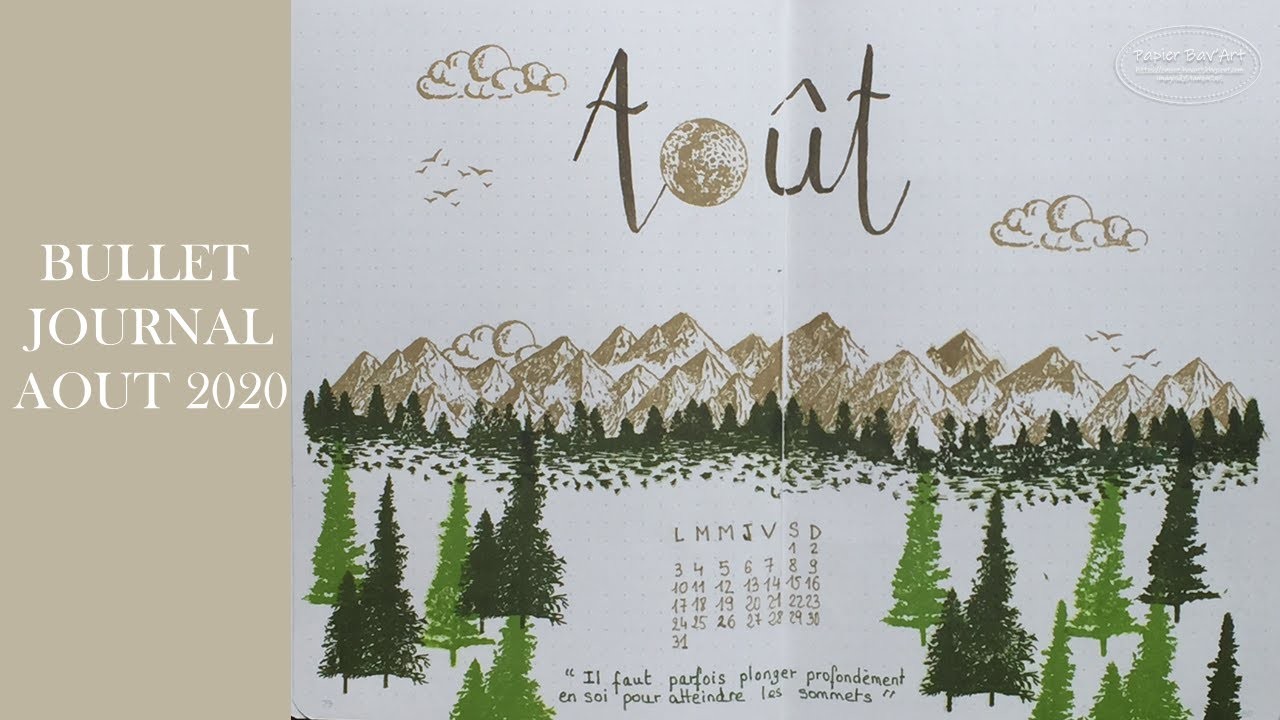 BULLET
JOURNAL
AOUT 2020
Papier Bav'Art
Août
L M M J V S D
1 2
3 4 5 6 7 8 9
10 11 12 13 14 15 16
17 18 19 20 21 22 23
24 25 26 27 28 29 30
31
“ Il faut parfois plonger profondèment
en soi pour atteindre les sommets ”